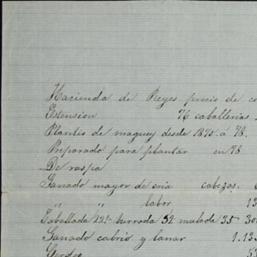 Hacienda de Reyes precio de co
Extension 76 caballerias
Plantio de maguey desde 1875 á 78.
Preparado para plantar en 78
De raspa
Ganado mayor de cria cabezas.
„ „ labor 13
Caballada 221- burrada 52 mulada 35- 30
Ganado cabrio y lanar 1.13